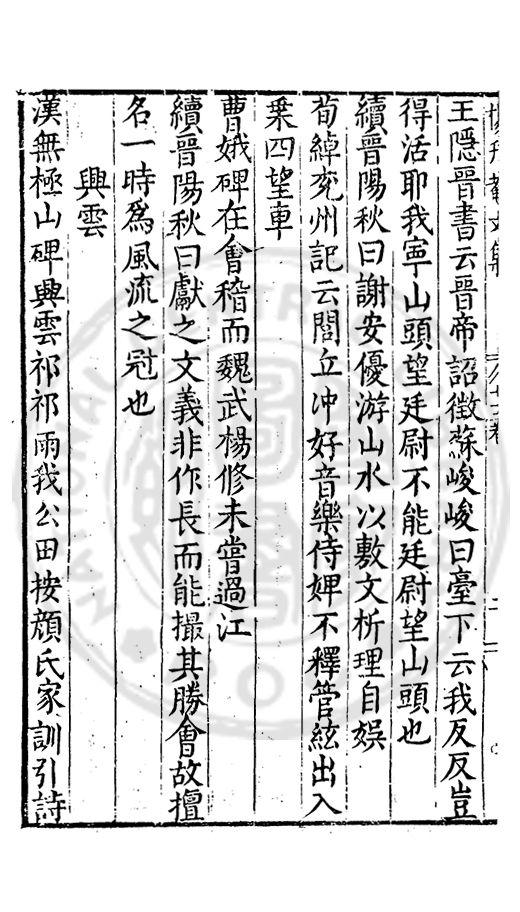 王隱晉書云晉帝詔徵蘇峻峻曰臺下云我反反豈
得活耶我寧山頭望廷尉不能廷尉望山頭也
續晉陽秋曰謝安優游山水以敷文析理自娛
荀綽兖州記云閭丘冲好音樂侍婢不釋管絃出入
乗四望車
曹娥碑在會稽而魏武楊修未嘗過江
續晉陽秋曰獻之文義非作長而能撮其勝會故擅
名一時爲風流之冠也
興雲
漢無極山碑興雲祁祁雨我公田按顔氏家訓引詩